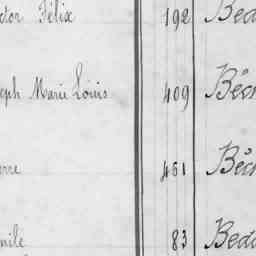 ctor Félix 192 Bed
eph Marie Louis 409 Béc
rre 461 Béc
mile 83 Beda